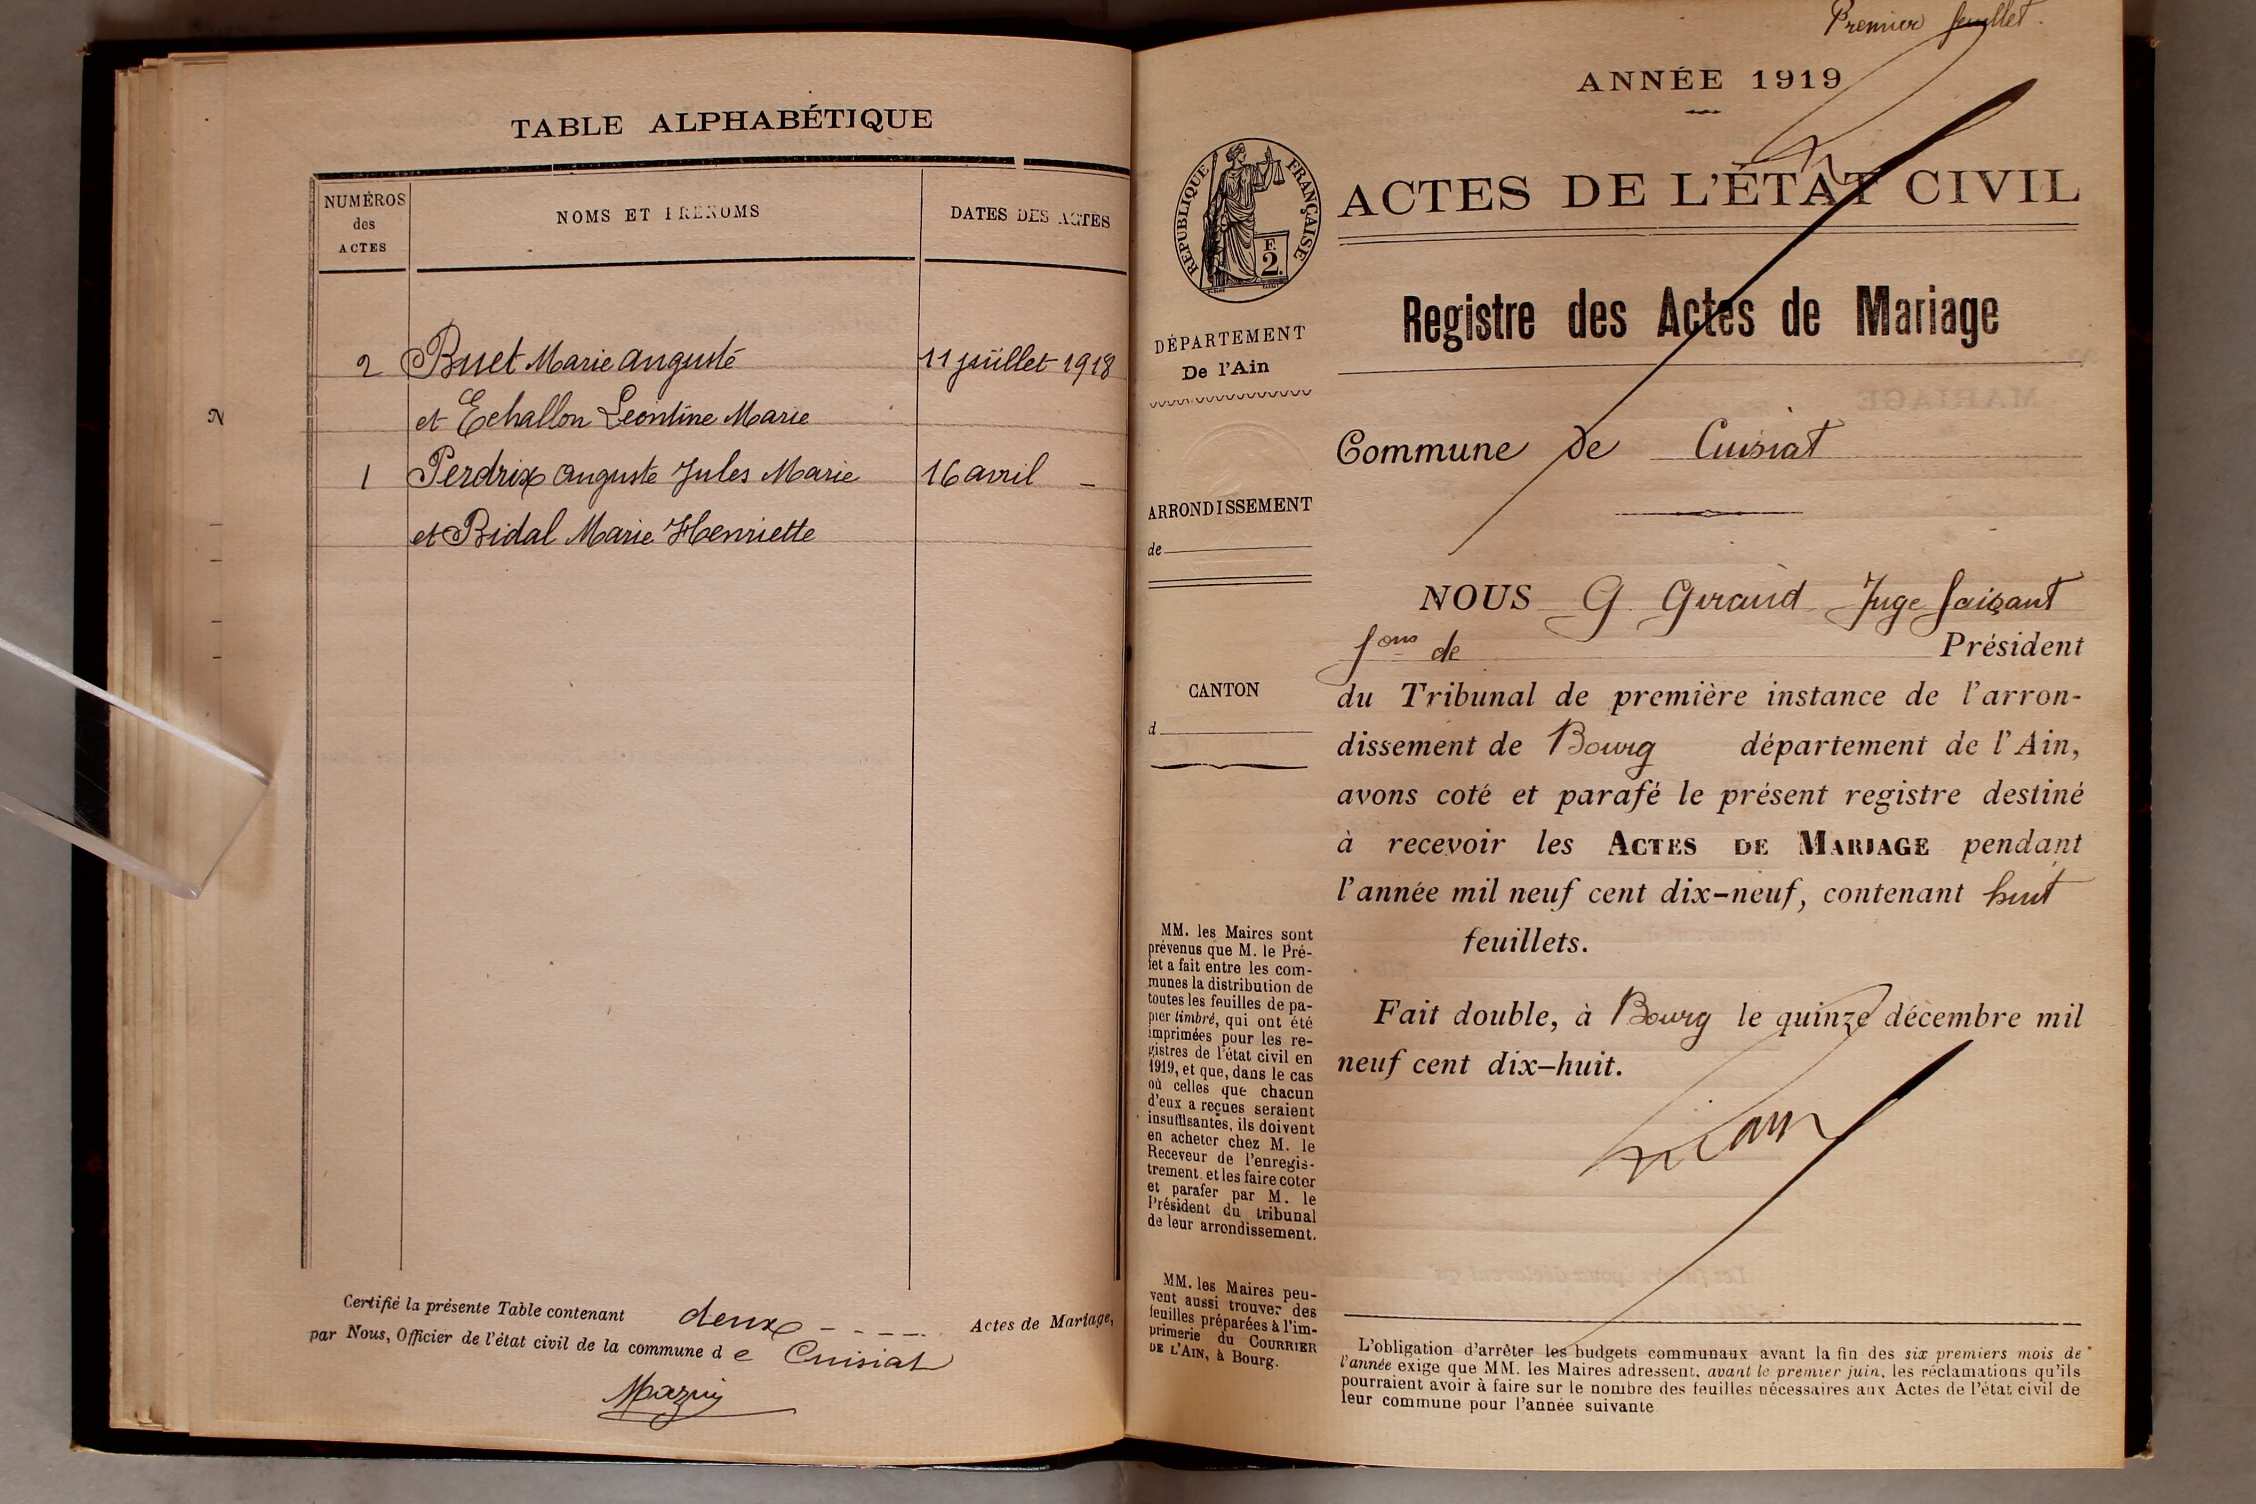 TABLE ALPHABÉTIQUE
NUMÉROS
des
ACTES
NOMS ET PRÉNOMS
DATES DES ACTES
2 Buet Marie auguste 11 juillet 1918
et Echallon Leontine Marie
1 Perdrix auguste Jules Marie 16 avril –
et Bidal Marie Henriette
Certifié la présente Table contenant deux – – – – Actes de Mariage,
par Nous, Officier de l'état civil de la commune d e Cuisiat
Mazuy
Premier feuillet.
ANNÉE 1919
RÉPUBLIQUE FRANÇAISE
F.
2.
ACTES DE L'ÉTAT CIVIL
Registre des Actes de Mariage
DÉPARTEMENT
De l'Ain
Commune de Cuisiat
ARRONDISSEMENT
de
CANTON
d
NOUS G Giraud Juge faisant
fons de Président
du Tribunal de première instance de l'arron-
dissement de Bourg département de l'Ain,
avons coté et parafé le présent registre destiné
à recevoir les ACTES DE MARIAGE pendant
l'année mil neuf cent dix-neuf, contenant huit
feuillets.
Fait double, à Bourg le quinze décembre mil
neuf cent dix-huit.
MM. les Maires sont
prévenus que M. le Pré-
fet a fait entre les com-
munes la distribution de
toutes les feuilles de pa-
pier timbré, qui ont été
imprimées pour les re-
gistres de l'état civil en
1919, et que, dans le cas
où celles que chacun
d'eux a reçues seraient
insuffisantes, ils doivent
en acheter chez M. le
Receveur de l'enregis-
trement et les faire coter
et parafer par M. le
Président du tribunal
de leur arrondissement.
MM. les Maires peu-
vent aussi trouver des
feuilles préparées à l'im-
primerie du COURRIER
DE L'AIN, à Bourg.
L'obligation d'arrêter les budgets communaux avant la fin des six premiers mois de
l'année exige que MM. les Maires adressent, avant le premier juin, les réclamations qu'ils
pourraient avoir à faire sur le nombre des feuilles nécessaires aux Actes de l'état civil de
leur commune pour l'année suivante